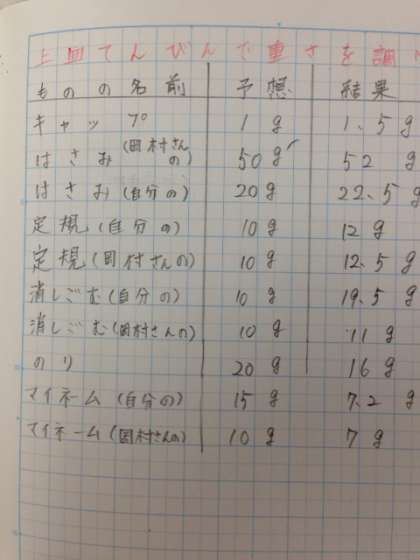 上皿てんびんで重さを調
ものの名前 予想 結果
キャップ 1g 1.5g
はさみ(岡村さんの) 50g 52g
はさみ(自分の) 20g 22.5g
定規(自分の) 10g 12g
定規(岡村さんの) 10g 12.5g
消しごむ(自分の) 10g 19.5g
消しごむ(岡村さんの) 10g 11g
のり 20g 16g
マイネーム(自分の) 15g 7.2g
マイネーム(岡村さんの) 10g 7g